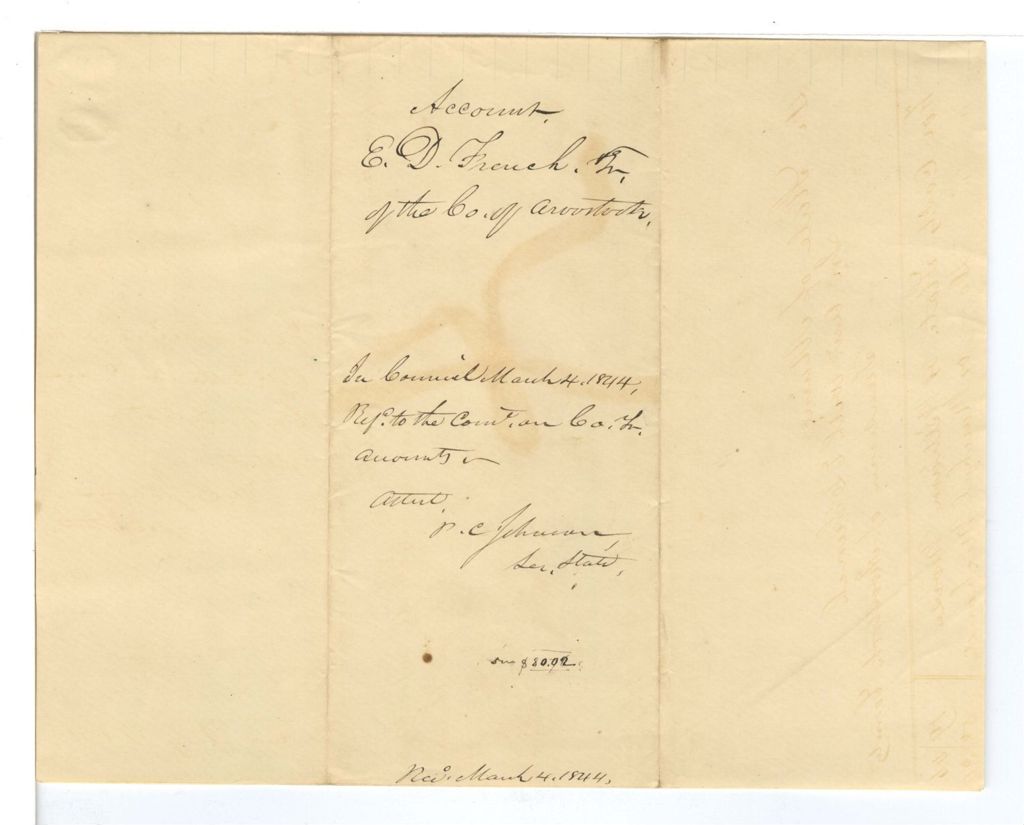 Account,
E. D. French. Tr,
of the Co. of Aroostook,
In Council March 4. 1844,
Refd. to the Comt. on Co. Tr.
Accounts
Attest,
P. C. Johnson,
Sec. State,
$80.02
Recd. March 4. 1844,